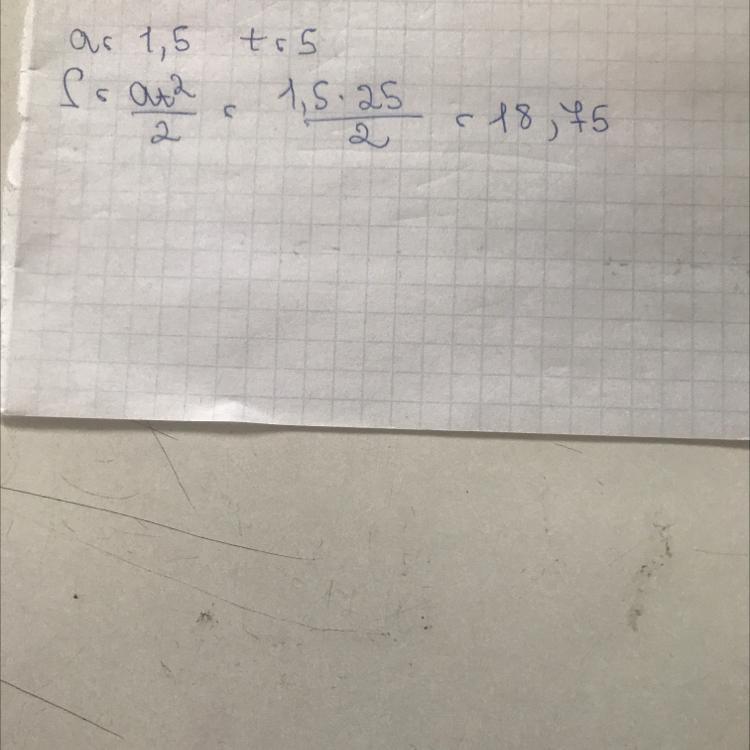 a = 1,5 t = 5
S = at²/2 = 1,5 · 25/2 = 18,75